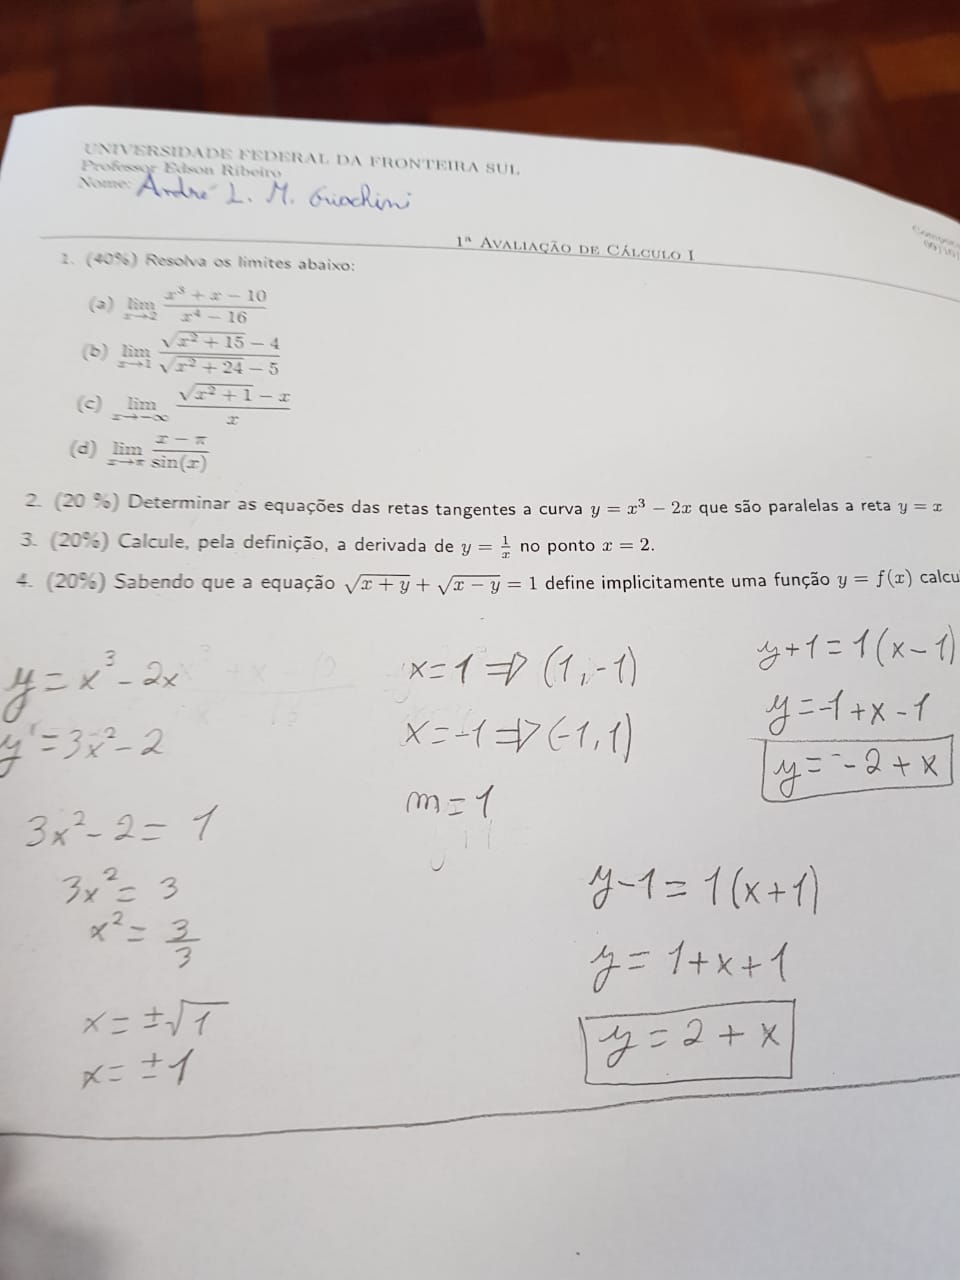 UNIVERSIDADE FEDERAL DA FRONTEIRA SUL
Professor Edson Ribeiro
Nome: André L. M. Giachini
1ª AVALIAÇÃO DE CÁLCULO I
1. (40%) Resolva os limites abaixo:
(a) lim x→2 (x³ + x − 10)/(x⁴ − 16)
(b) lim x→1 (√(x² + 15) − 4)/(√(x² + 24) − 5)
(c) lim x→−∞ (√(x² + 1) − x)/x
(d) lim x→π (x − π)/sin(x)
2. (20 %) Determinar as equações das retas tangentes a curva y = x³ − 2x que são paralelas a reta y = x
3. (20%) Calcule, pela definição, a derivada de y = 1/x no ponto x = 2.
4. (20%) Sabendo que a equação √(x + y) + √(x − y) = 1 define implicitamente uma função y = f(x) calcu
y = x³ - 2x
y' = 3x² - 2
3x² - 2 = 1
3x² = 3
x² = 3/3
x = ±√1
x = ±1
x = 1 ⇒ (1, -1)
x = -1 ⇒ (-1, 1)
m = 1
y + 1 = 1(x - 1)
y = -1 + x - 1
y = -2 + x
y - 1 = 1(x + 1)
y = 1 + x + 1
y = 2 + x